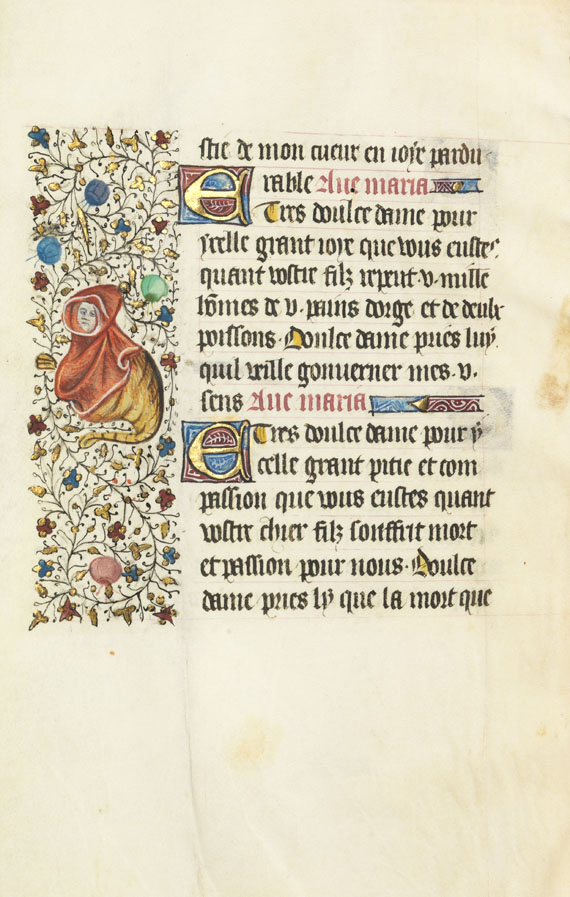 stie de mon cueur en ioye pardu
rable Aue maria
E Tres doulce dame pour
ycelle grant ioye que vous eustes
quant vostre filz reput .v. mille
hōmes de .v. pains dorge et de deulx
poissons. Doulce dame pries luy
quil veille gouuerner mes .v.
sens Aue maria
E Tres doulce dame pour y
celle grant pitie et com
passion que vous eustes quant
vostre chier filz souffrit mort
et passion pour nous. Doulce
dame pries ly que la mort que